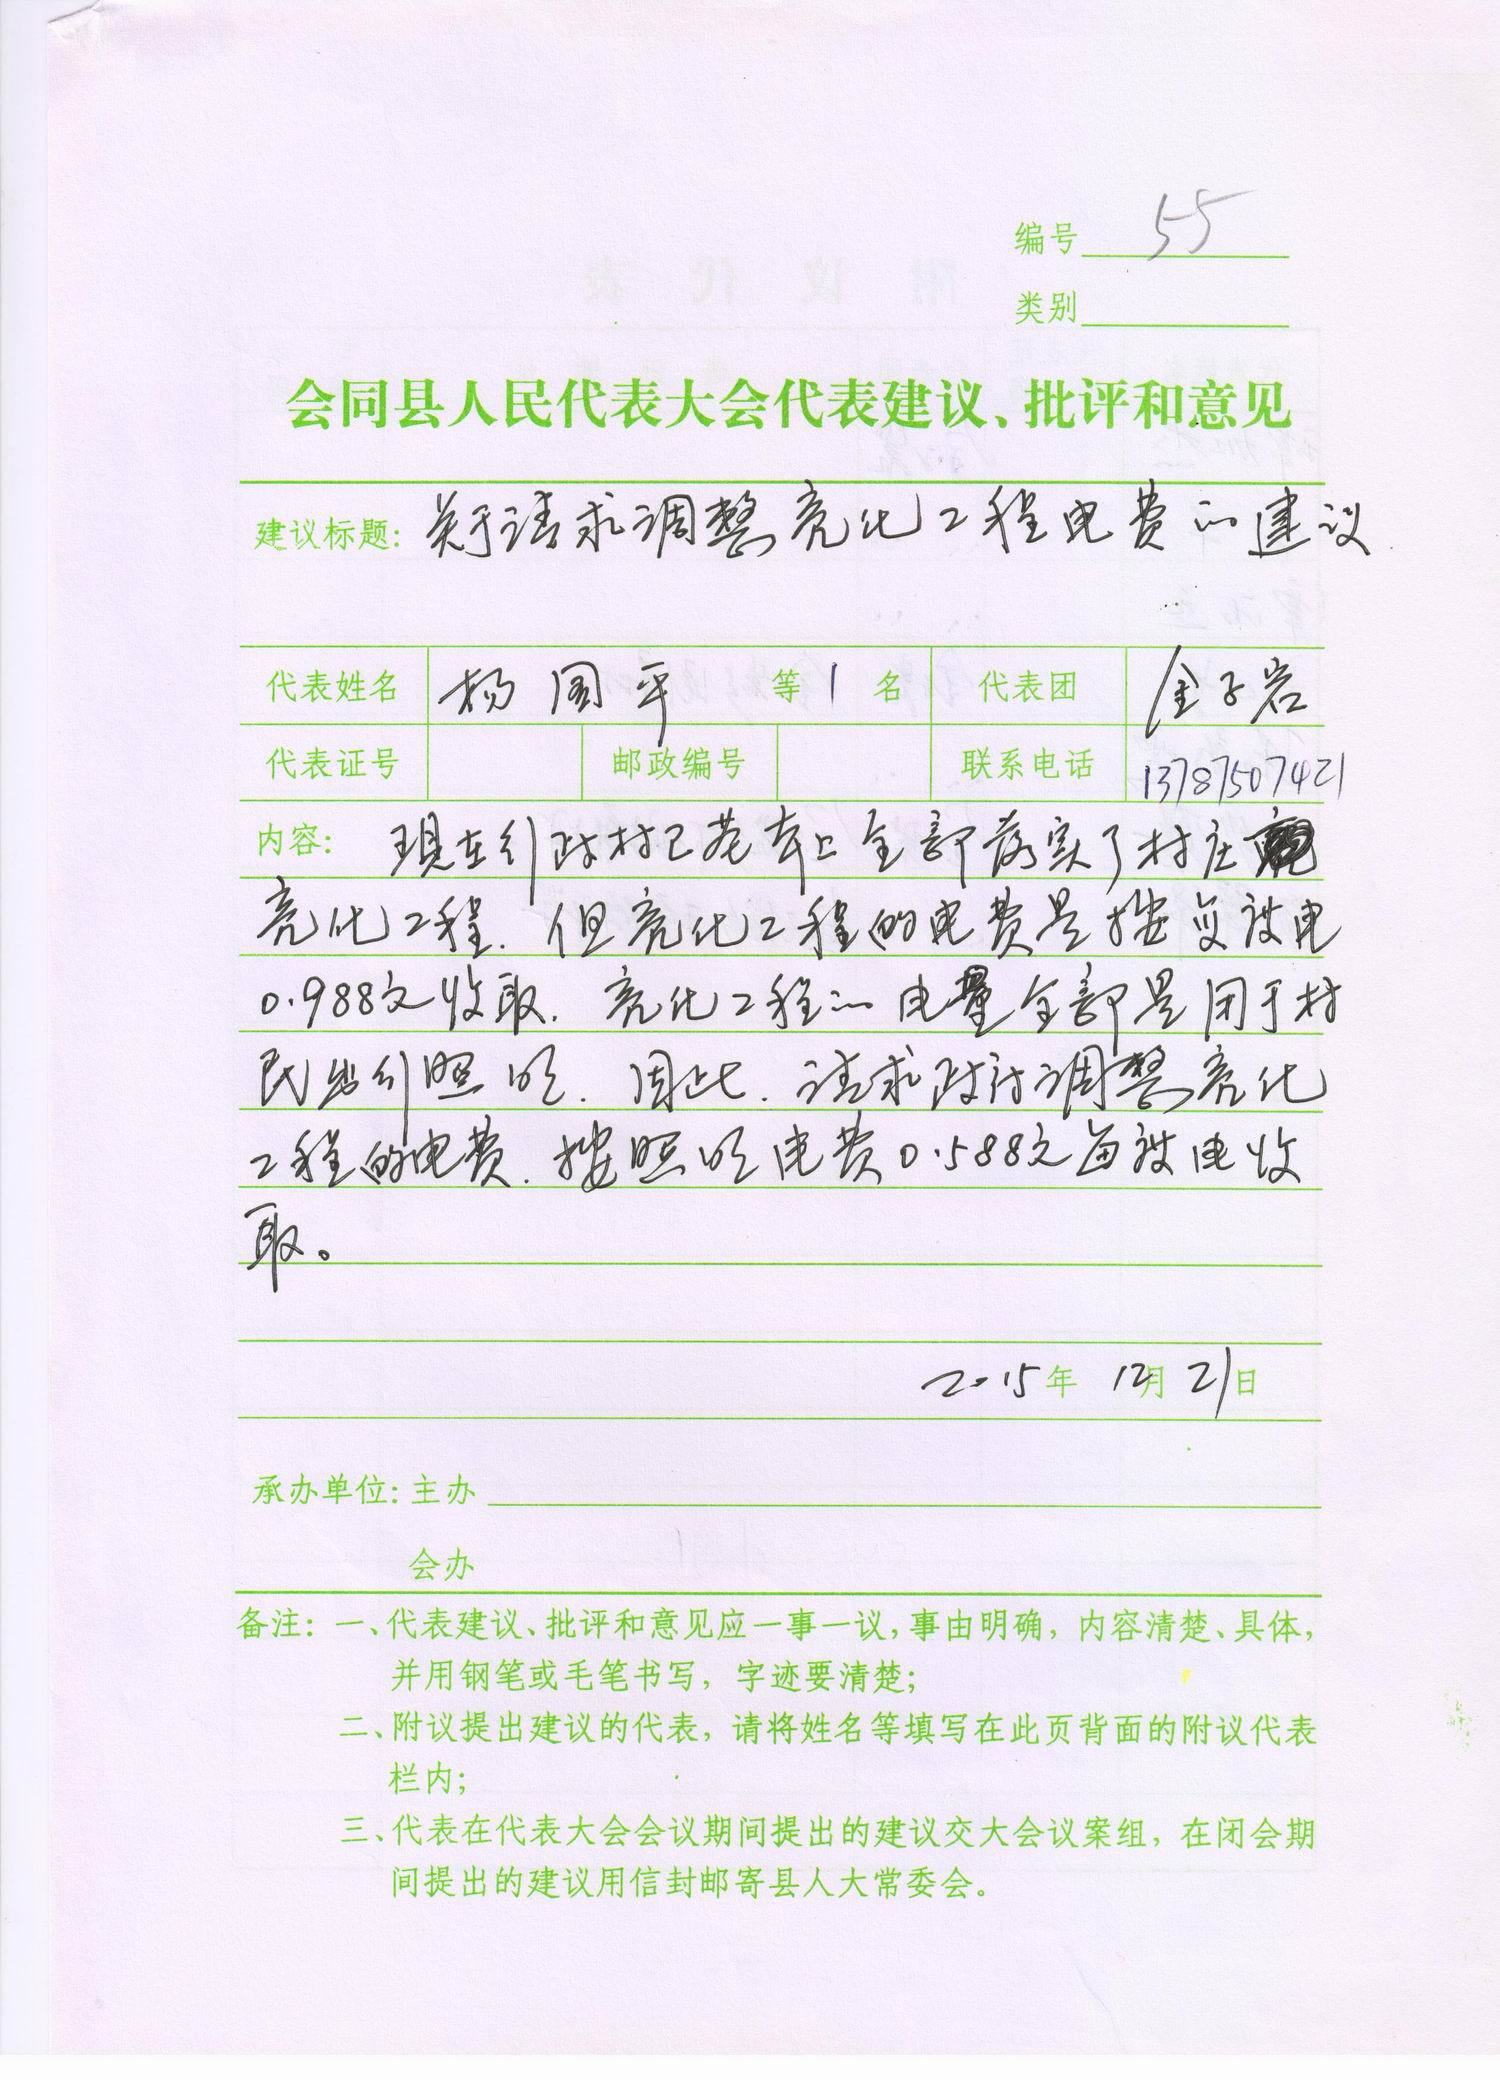 编号 55
类别
会同县人民代表大会代表建议、批评和意见
建议标题: 关于请求调整亮化工程电费的建议
代表姓名 杨国平 等1名 代表团 金子岩
代表证号 邮政编号 联系电话 13787507421
内容: 现在行政村已基本上全部落实了村庄
亮化工程.但亮化工程的电费是按每度电
0.988元收取.亮化工程的电量全部是用于村
民出行照明.因此.请求政府调整亮化
工程的电费.按照明电费0.588元每度电收
取。
2015年 12月 21日
承办单位: 主办
会办
备注: 一、代表建议、批评和意见应一事一议,事由明确,内容清楚、具体,
并用钢笔或毛笔书写,字迹要清楚;
二、附议提出建议的代表,请将姓名等填写在此页背面的附议代表
栏内;
三、代表在代表大会会议期间提出的建议交大会议案组,在闭会期
间提出的建议用信封邮寄县人大常委会。